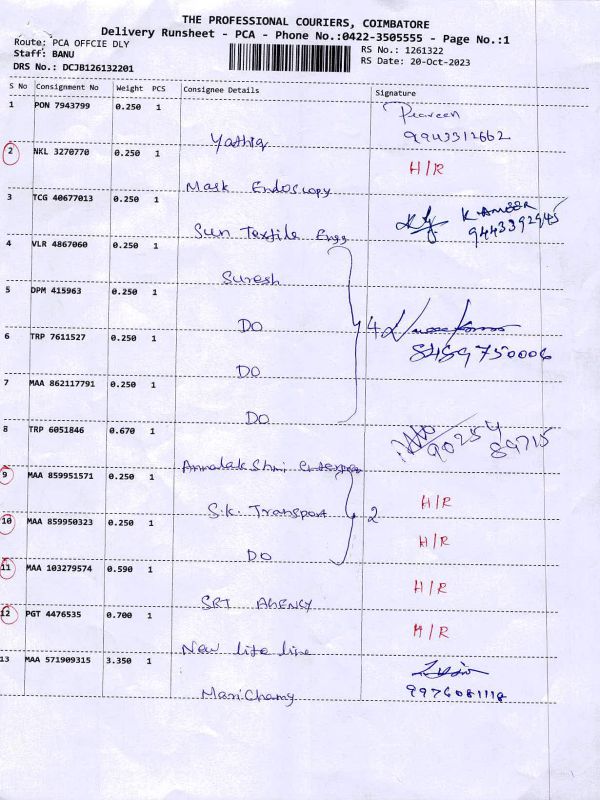 THE PROFESSIONAL COURIERS, COIMBATORE
Delivery Runsheet - PCA - Phone No.:0422-3505555 - Page No.:1
Route: PCA OFFCIE DLY
RS No.: 1261322
Staff: BANU
RS Date: 20-Oct-2023
DRS No.: DCJB126132201
S No Consignment No Weight PCS Consignee Details Signature
1 PON 7943799 0.250 1 Praveen
9943312662
Yathiq
2 NKL 3270770 0.250 1 H/R
Mask Endoscopy
3 TCG 40677013 0.250 1 K. AMEER
9443392945
Sun Textile Engg
4 VLR 4867060 0.250 1
Suresh
5 DPM 415963 0.250 1
DO 4
6 TRP 7611527 0.250 1 8489750006
DO
7 MAA 862117791 0.250 1
DO
8 TRP 6051846 0.670 1 90254
89715
Annalakshmi Enterprises
9 MAA 859951571 0.250 1 H/R
S.K. Transport 2
10 MAA 859950323 0.250 1 H/R
DO
11 MAA 103279574 0.590 1 H/R
SRT AGENCY
12 PGT 4476535 0.700 1 H/R
New life line
13 MAA 571909315 3.350 1
9976081118
Marichamy